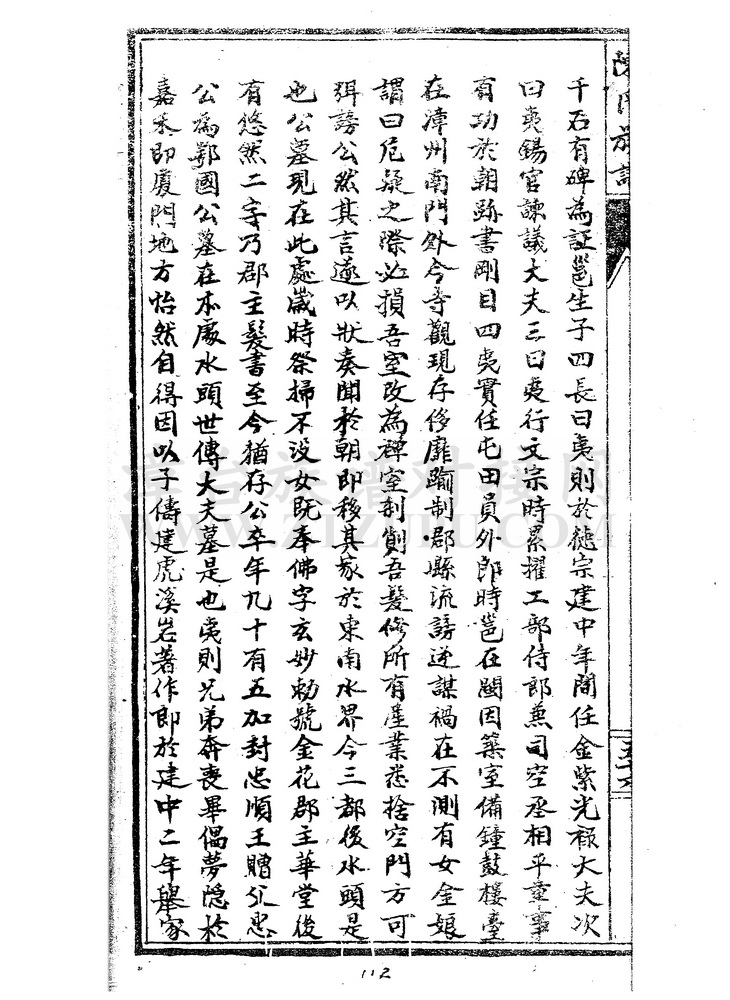 千石有碑為証邕生子四長曰夷則於德宗建中年間任金紫光祿大夫次
曰夷錫官諫議大夫三曰夷行文宗時累擢工部侍郎兼司空丞相平章事
有功於朝跡書剛目四夷實任屯田員外郎時邕在闕因築室備鐘鼓樓臺
在漳州南門外今寺觀現存侈靡踰制郡縣流謗逆謀禍在不測有女金娘
謂曰危疑之際必損吾室改為禪室剃吾髮修所有產業悉捨空門方可
弭謗公然其言遂以狀奏聞於朝即移其家於東南水界今三都後水頭是
也公墓現在此處歲時祭掃不没女既奉佛字玄妙勅號金花郡主華堂後
有悠然二字乃郡主髮書至今猶存公卒年九十有五加封忠順王贈父忠
公為鄂國公墓在本處水頭世傳大夫墓是也夷則兄弟奔喪畢偈夢隱於
嘉禾即廈門地方怡然自得因以子儔建虎溪岩著作郎於建中二年舉家
族譜
112
WWW.ZTZUPU.COM